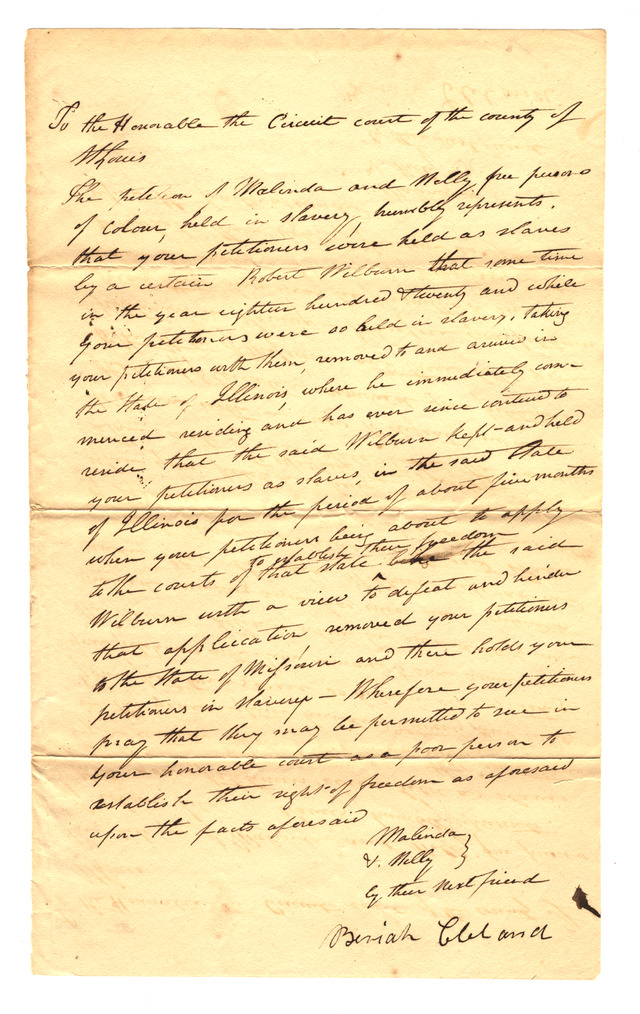 To the Honorable the Circuit court of the county of
St Louis
The petition of Malinda and Nelly free persons
of colour, held in slavery, humbly represents,
that your petitioners were held as slaves
by a certain Robert Wilburn that some time
in the year eighteen hundred & twenty and while
your petitioners were so held in slavery, taking
your petitioners with them, removed to and arrived in
the State of Illinois, where he immediately com-
menced residing and has ever since continued to
reside, that the said Wilburn kept and held
your petitioners as slaves, in the said State
of Illinois for the period of about five months
when your petitioners being about to apply
to establish their freedom
to the courts of that state the said
Wilburn with a view to defeat and hinder
that application, removed your petitioners
to the State of Missouri and there holds your
petitioners in slavery — Wherefore your petitioners
pray that they may be permitted to sue in
your honorable court as a poor person to
establish their right of freedom as aforesaid
upon the facts aforesaid
Malinda
& Nelly
by their next friend
Beriah Cleland